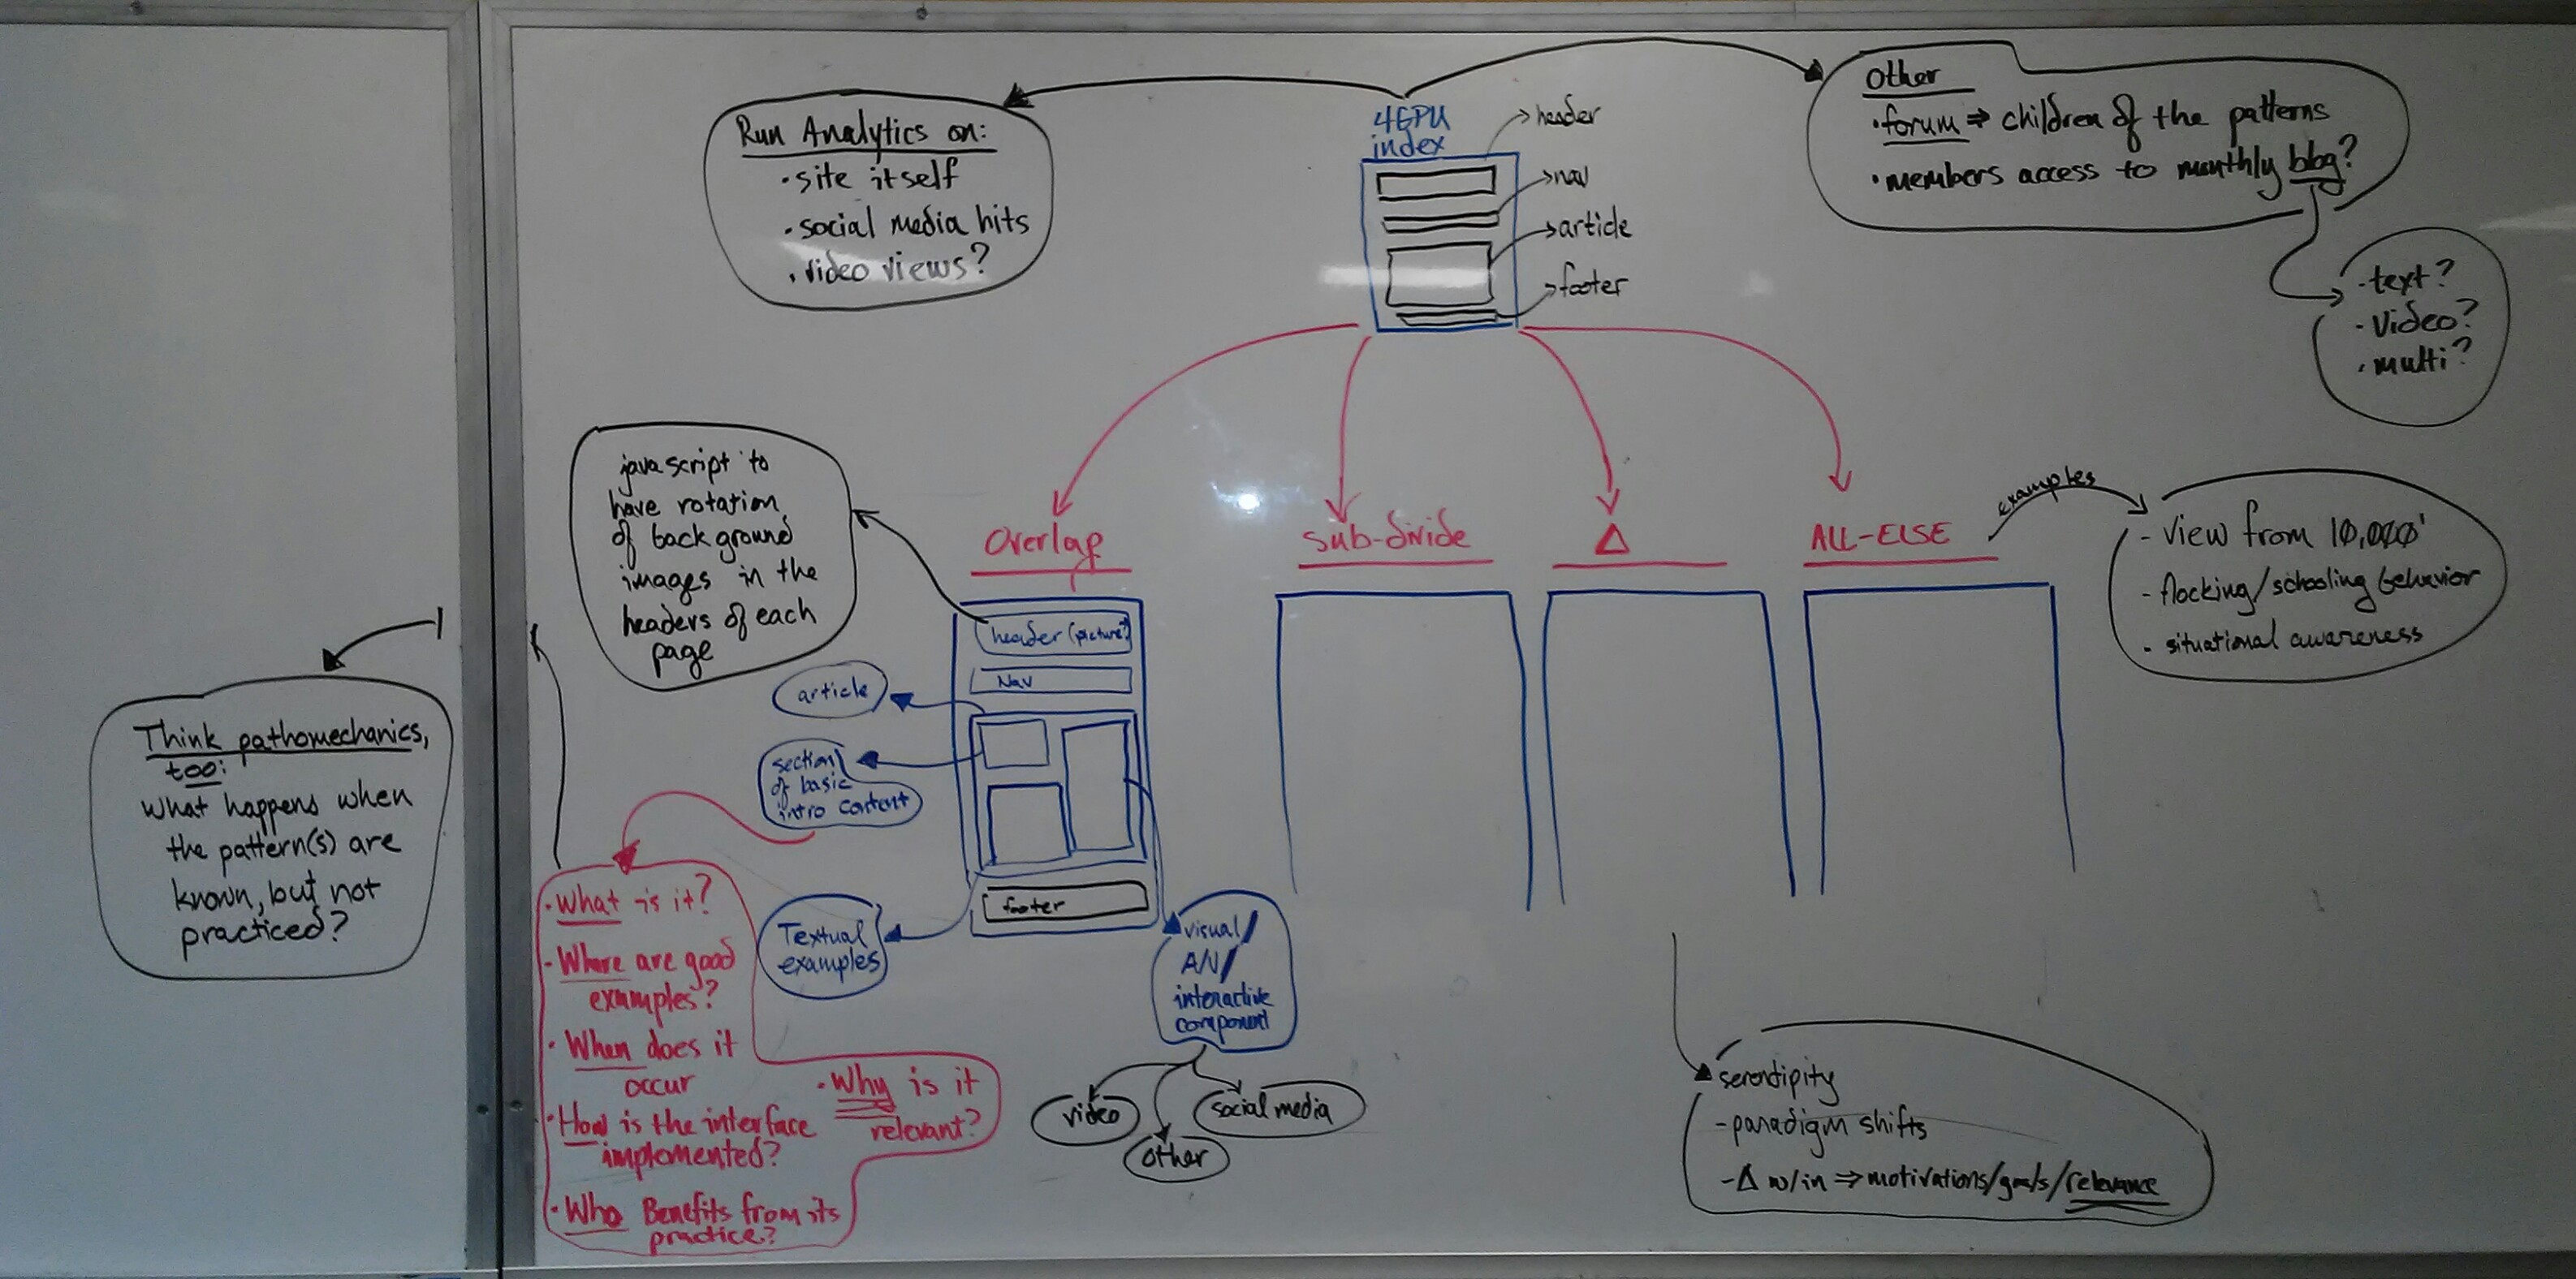 4GPU
index
header
nav
article
footer
Run Analytics on:
· site itself
· social media hits
· video views?
Other
· forum ⇒ children of the patterns
· members access to monthly blog?
· text?
· Video?
· multi?
javascript to
have rotation
of background
images in the
headers of each
page
Overlap
Sub-divide
Δ
ALL-ELSE
examples
- view from 10,000'
- flocking/schooling behavior
- situational awareness
header (picture?)
Nav
footer
article
section
of basic
intro content
Textual
examples
visual/
A/V/
interactive
component
video
other
social media
Think pathomechanics,
too:
what happens when
the pattern(s) are
known, but not
practiced?
· What is it?
· Where are good
examples?
· When does it
occur
· How is the interface
implemented?
· Who Benefits from its
practice?
· Why is it
relevant?
serendipity
- paradigm shifts
- Δ w/in ⇒ motivations/goals/relevance